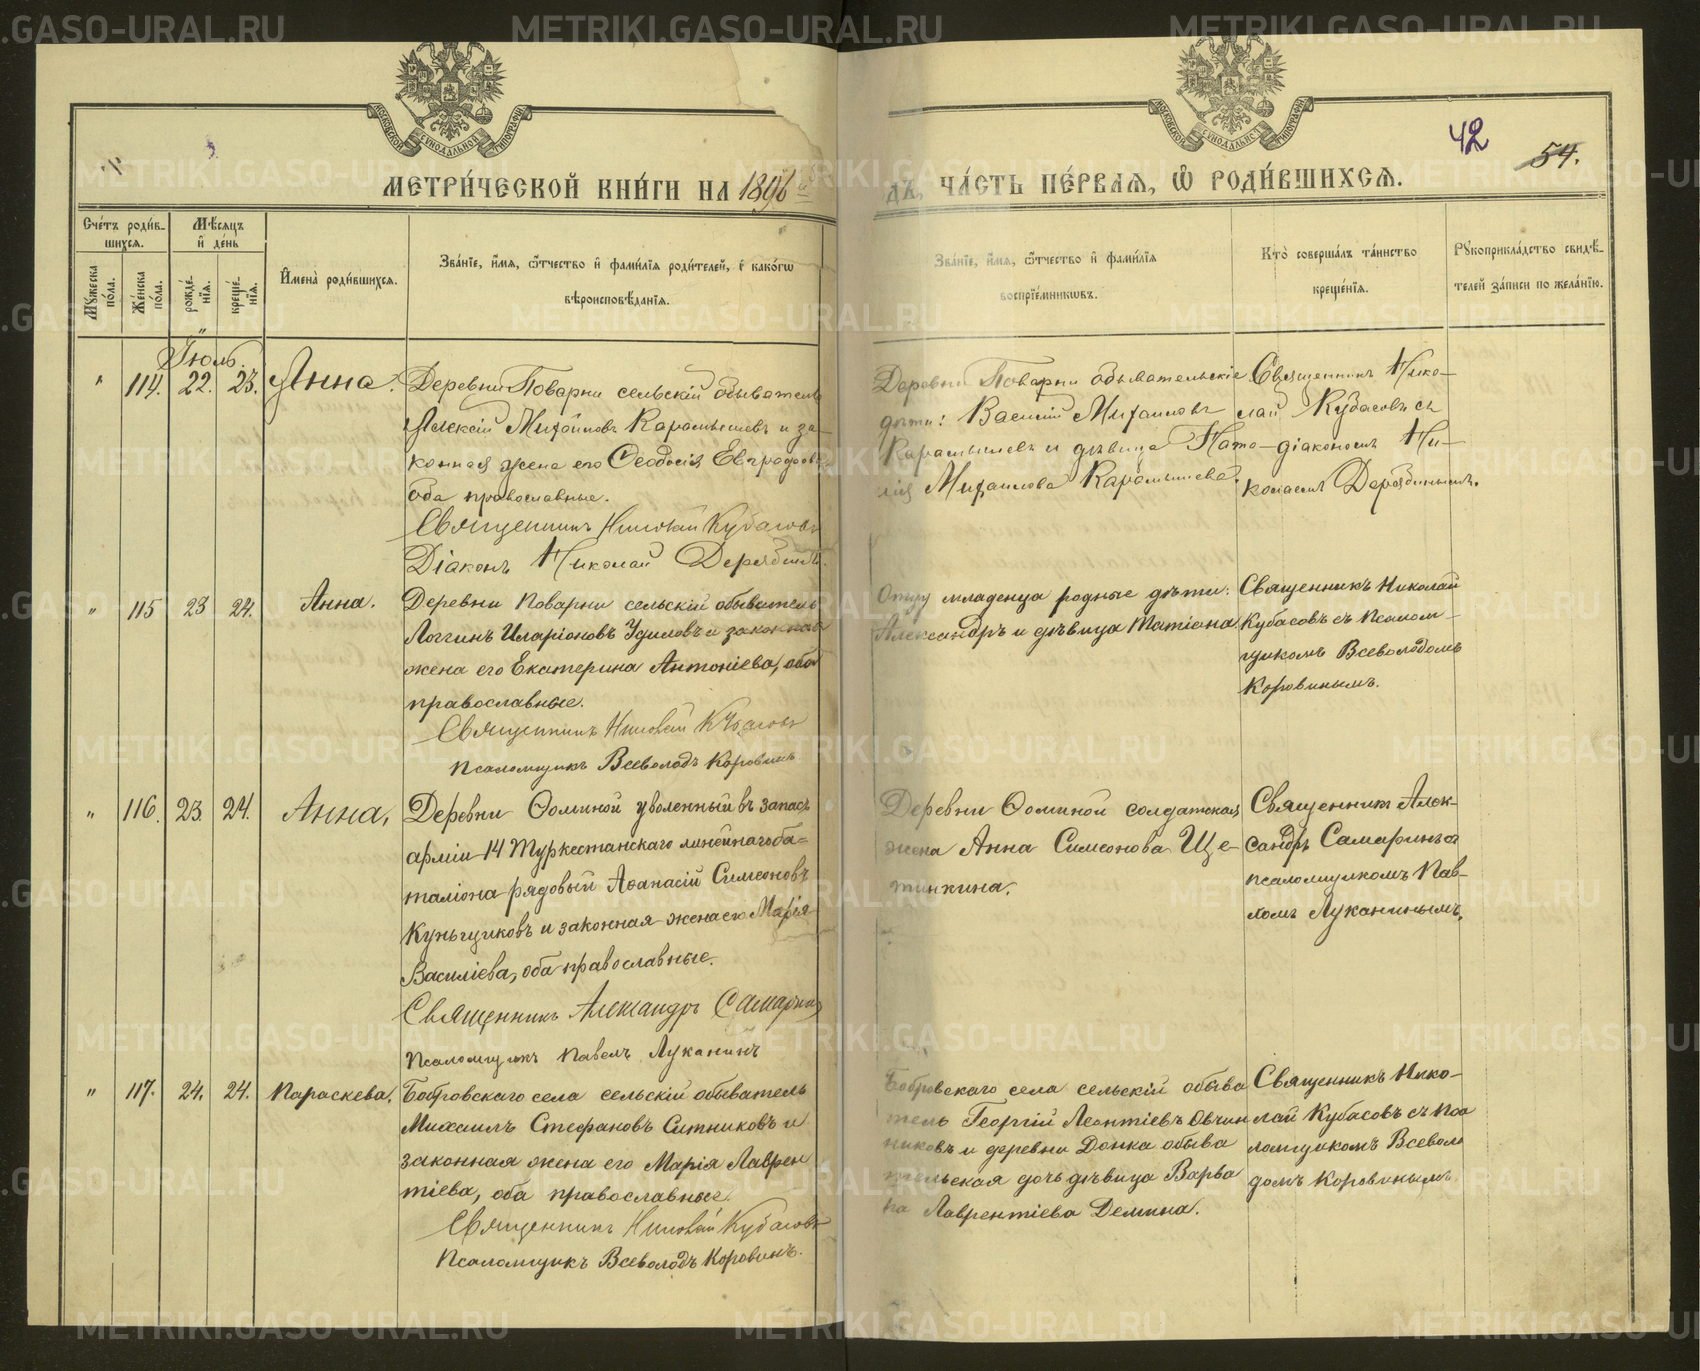 МЕТРИ́ЧЕСКОЙ КНИ́ГИ НА 1896
ЧА́СТЬ ПЕ́РВАЯ, Ѿ РОДИ́ВШИХСЯ.
42
54.
Сче́тъ роди́в-
шихся.
Мꙋ́жеска
по́ла.
Же́нска
по́ла.
Мѣ́сяцъ
и҆ де́нь
рожде́-
нїя.
креще́-
нїя.
И҆мена̀ роди́вшихся.
Зва́нїе, и҆́мя, ѻ҆́тчество и҆ фами́лїя роди́телей, и҆ како́гѡ
вѣроисповѣ́данїя.
Зва́нїе, и҆́мя, ѻ҆́тчество и҆ фами́лїя
воспрїе́мникѡвъ.
Кто̀ соверша́лъ та́инство
креще́нїя.
Рꙋкоприкла́дство свидѣ́-
телей за́писи по жела́нїю.
Іюль.
" 114. 22. 23. Анна.
Деревни Поварни сельскій обыватель
Алексій Михаиловъ Карамышевъ и за-
конная жена его Ѳеодосія
оба православные.
Священникъ Николай Кубасовъ
Діаконъ Николай Дерябинъ.
Деревни Поварни обывательскіе
дѣти: Василій Михаиловъ
Карамышевъ и дѣвица Ната-
лія Михаилова Карамышева.
Священникъ Нико-
лай Кубасовъ съ
діакономъ Ни-
колаемъ Дерябинымъ.
" 115 23 24. Анна.
Деревни Поварни сельскій обыватель
Логгинъ Иларіоновъ Удиловъ и законная
жена его Екатерина Антоніева, оба
православные.
Священникъ Николай Кубасовъ
Псаломщикъ Всеволодъ Коровинъ
Отцу младенца родные дѣти:
Александръ и дѣвица Татіана.
Священникъ Николай
Кубасовъ съ Псалом-
щикомъ Всеволодомъ
Коровинымъ.
" 116. 23. 24. Анна,
Деревни Ѳоминой уволенный въ запасъ
арміи 14 Туркестанскаго линейнаго ба-
таліона рядовый Аѳанасій Симеоновъ
Куньщиковъ и законная жена его Марія
Василіева, оба православные.
Священникъ Александръ Самаринъ
Псаломщикъ Павелъ Луканинъ
Деревни Ѳоминой солдатская
жена Анна Симеонова Ще-
тинкина.
Священникъ Алек-
сандръ Самаринъ съ
псаломщикомъ Пав-
ломъ Луканинымъ.
" 117. 24. 24. Параскева.
Бобровскаго села сельскій обыватель
Михаилъ Стефановъ Ситниковъ и
законная жена его Марія Лаврен
тіева, оба православные.
Священникъ Николай Кубасовъ
Псаломщикъ Всеволодъ Коровинъ.
Бобровскаго села сельскій обыва
тель Георгій Леонтіевъ Овчин
никовъ и деревни Донка обыва
тельская дочь дѣвица Варва
ра Лаврентіева Демина.
Священникъ Нико-
лай Кубасовъ съ Пса
ломщикомъ Всеволо
домъ Коровинымъ.